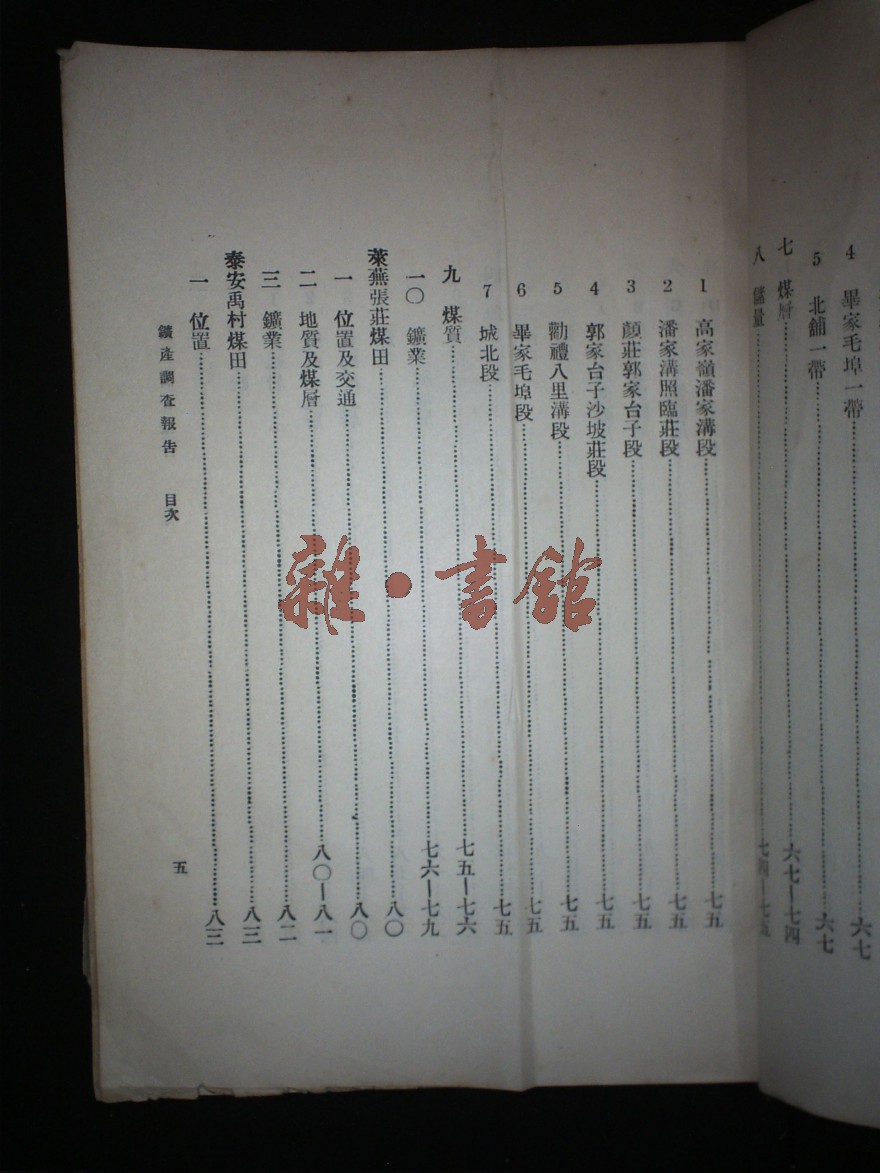 4 畢家毛埠一帶……六七
5 北舖一帶……六七
七 煤層……六七—七四
八 儲量……七四—七五
1 高家嶺潘家溝段……七五
2 潘家溝照臨莊段……七五
3 顏莊郭家台子段……七五
4 郭家台子沙坡莊段……七五
5 勸禮八里溝段……七五
6 畢家毛埠段……七五
7 城北段……七五
九 煤質……七五—七六
一〇 鑛業……七六—七九
萊蕪張莊煤田……八〇
一 位置及交通……八〇
二 地質及煤層……八〇—八一
三 鑛業……八二
泰安禹村煤田……八三
一 位置……八三
鑛產調查報告 目次
五
雜·書館